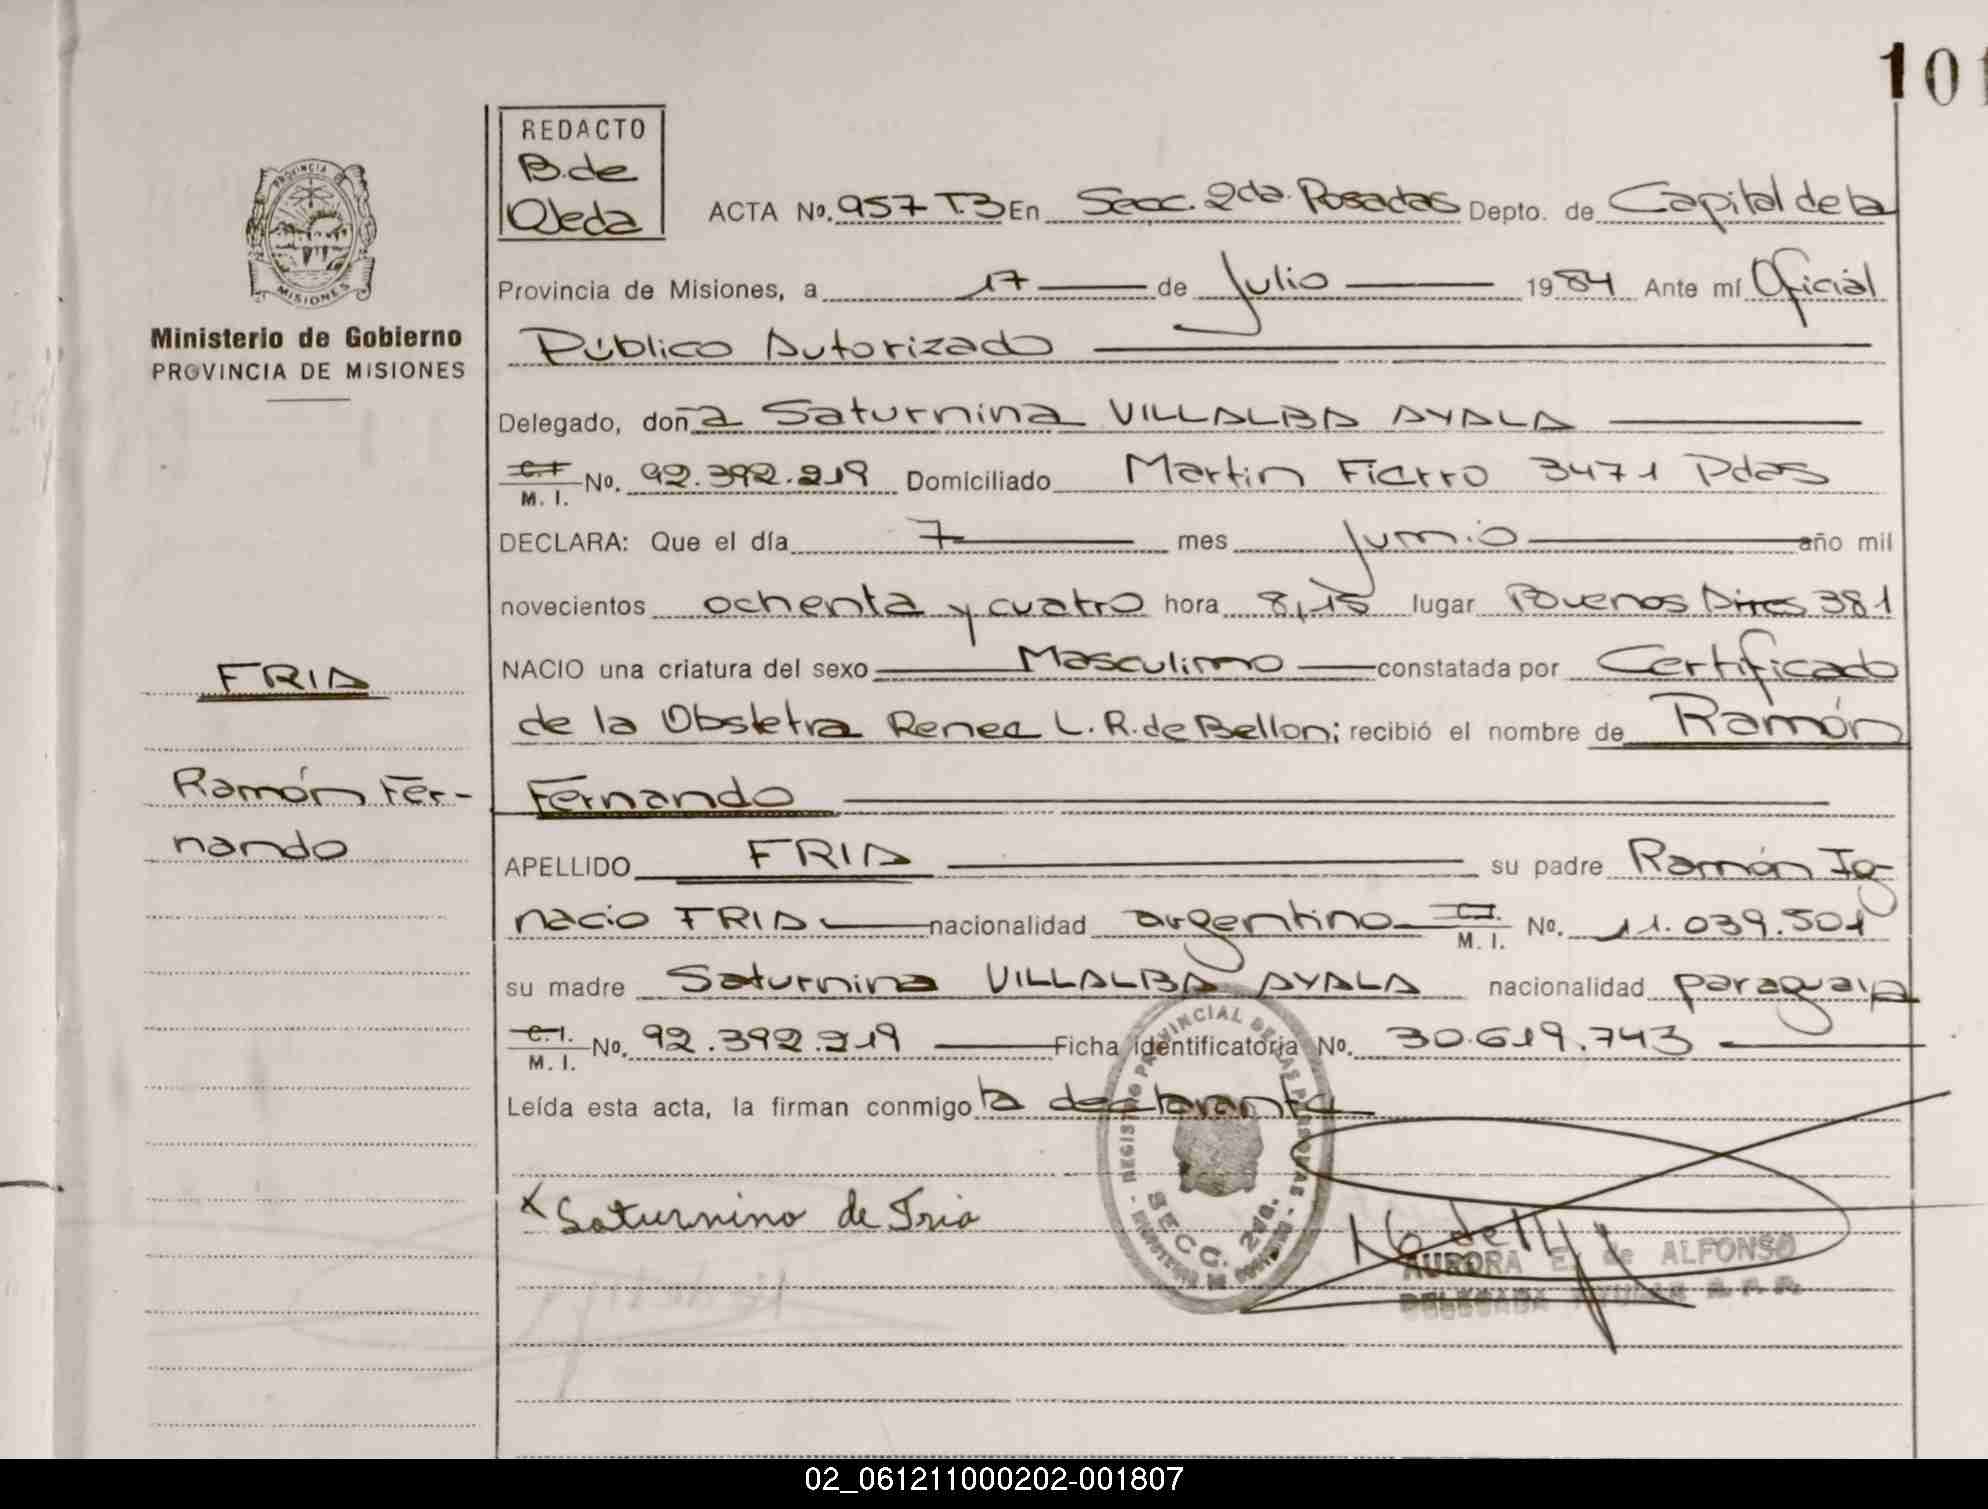 101
REDACTO
B. de
Ojeda
PROVINCIA DE
MISIONES
Ministerio de Gobierno
PROVINCIA DE MISIONES
ACTA Nº. 957 T.3 En Secc. 2da. Posadas Depto. de Capital de la
Provincia de Misiones, a 17 de Julio 1984 Ante mí Oficial
Público Autorizado
Delegado, doña Saturnina VILLALBA AYALA
C.I. M. I. Nº. 92.392.219 Domiciliado Martin Fierro 3471 Pdas
DECLARA: Que el día 7 mes Junio año mil
novecientos ochenta y cuatro hora 8,15 lugar Buenos Aires 381
NACIO una criatura del sexo Masculino constatada por Certificado
de la Obstetra Renee L. R. de Bellon; recibió el nombre de Ramón
Fernando
FRIA
Ramón Fer-
nando
APELLIDO FRIA su padre Ramón Ig
nacio FRIA nacionalidad argentino C.I. M. I. Nº. 11.039.501
su madre Saturnina VILLALBA AYALA nacionalidad paraguaya
C. I. M. I. Nº. 92.392.219 Ficha identificatoria Nº. 30.619.743
Leída esta acta, la firman conmigo la declarante
x Saturnino de Fria
REGISTRO PROVINCIAL DE LAS PERSONAS
SECC. 2da.
AURORA E. de ALFONSO
DELEGADA TITULAR R. P. P.
02_061211000202-001807